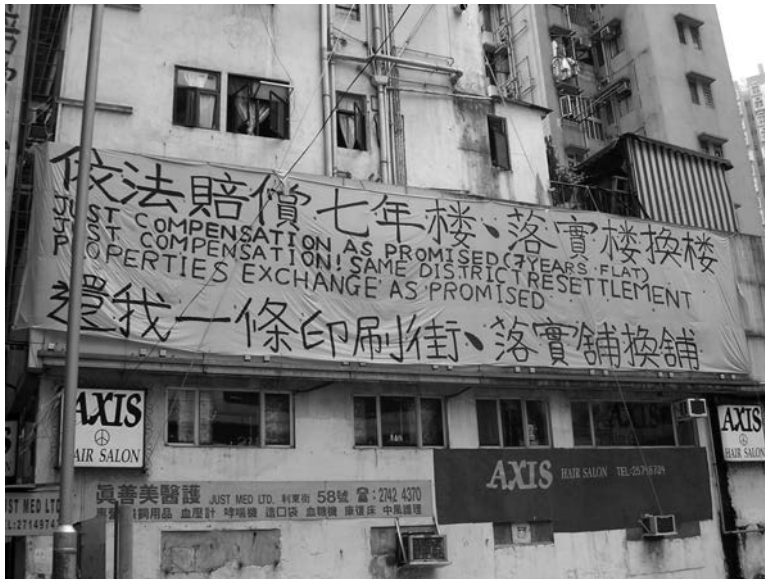 依法賠償七年楼、落實楼換楼
JUST COMPENSATION AS PROMISED (7YEARS FLAT)
JUST COMPENSATION! SAME DISTRICT RESETTLEMENT
PROPERTIES EXCHANGE AS PROMISED
還我一條印刷街、落實舖換舖
AXIS
HAIR SALON
AXIS
HAIR SALON TEL:25748704
AXIS
HAIR SALON
眞善美醫護 JUST MED LTD. 利東街 58號 ☎: 2742 4370
用品 血壓計 哮喘機 造口袋 血糖機 康復床 中風護理
JUST MED LTD